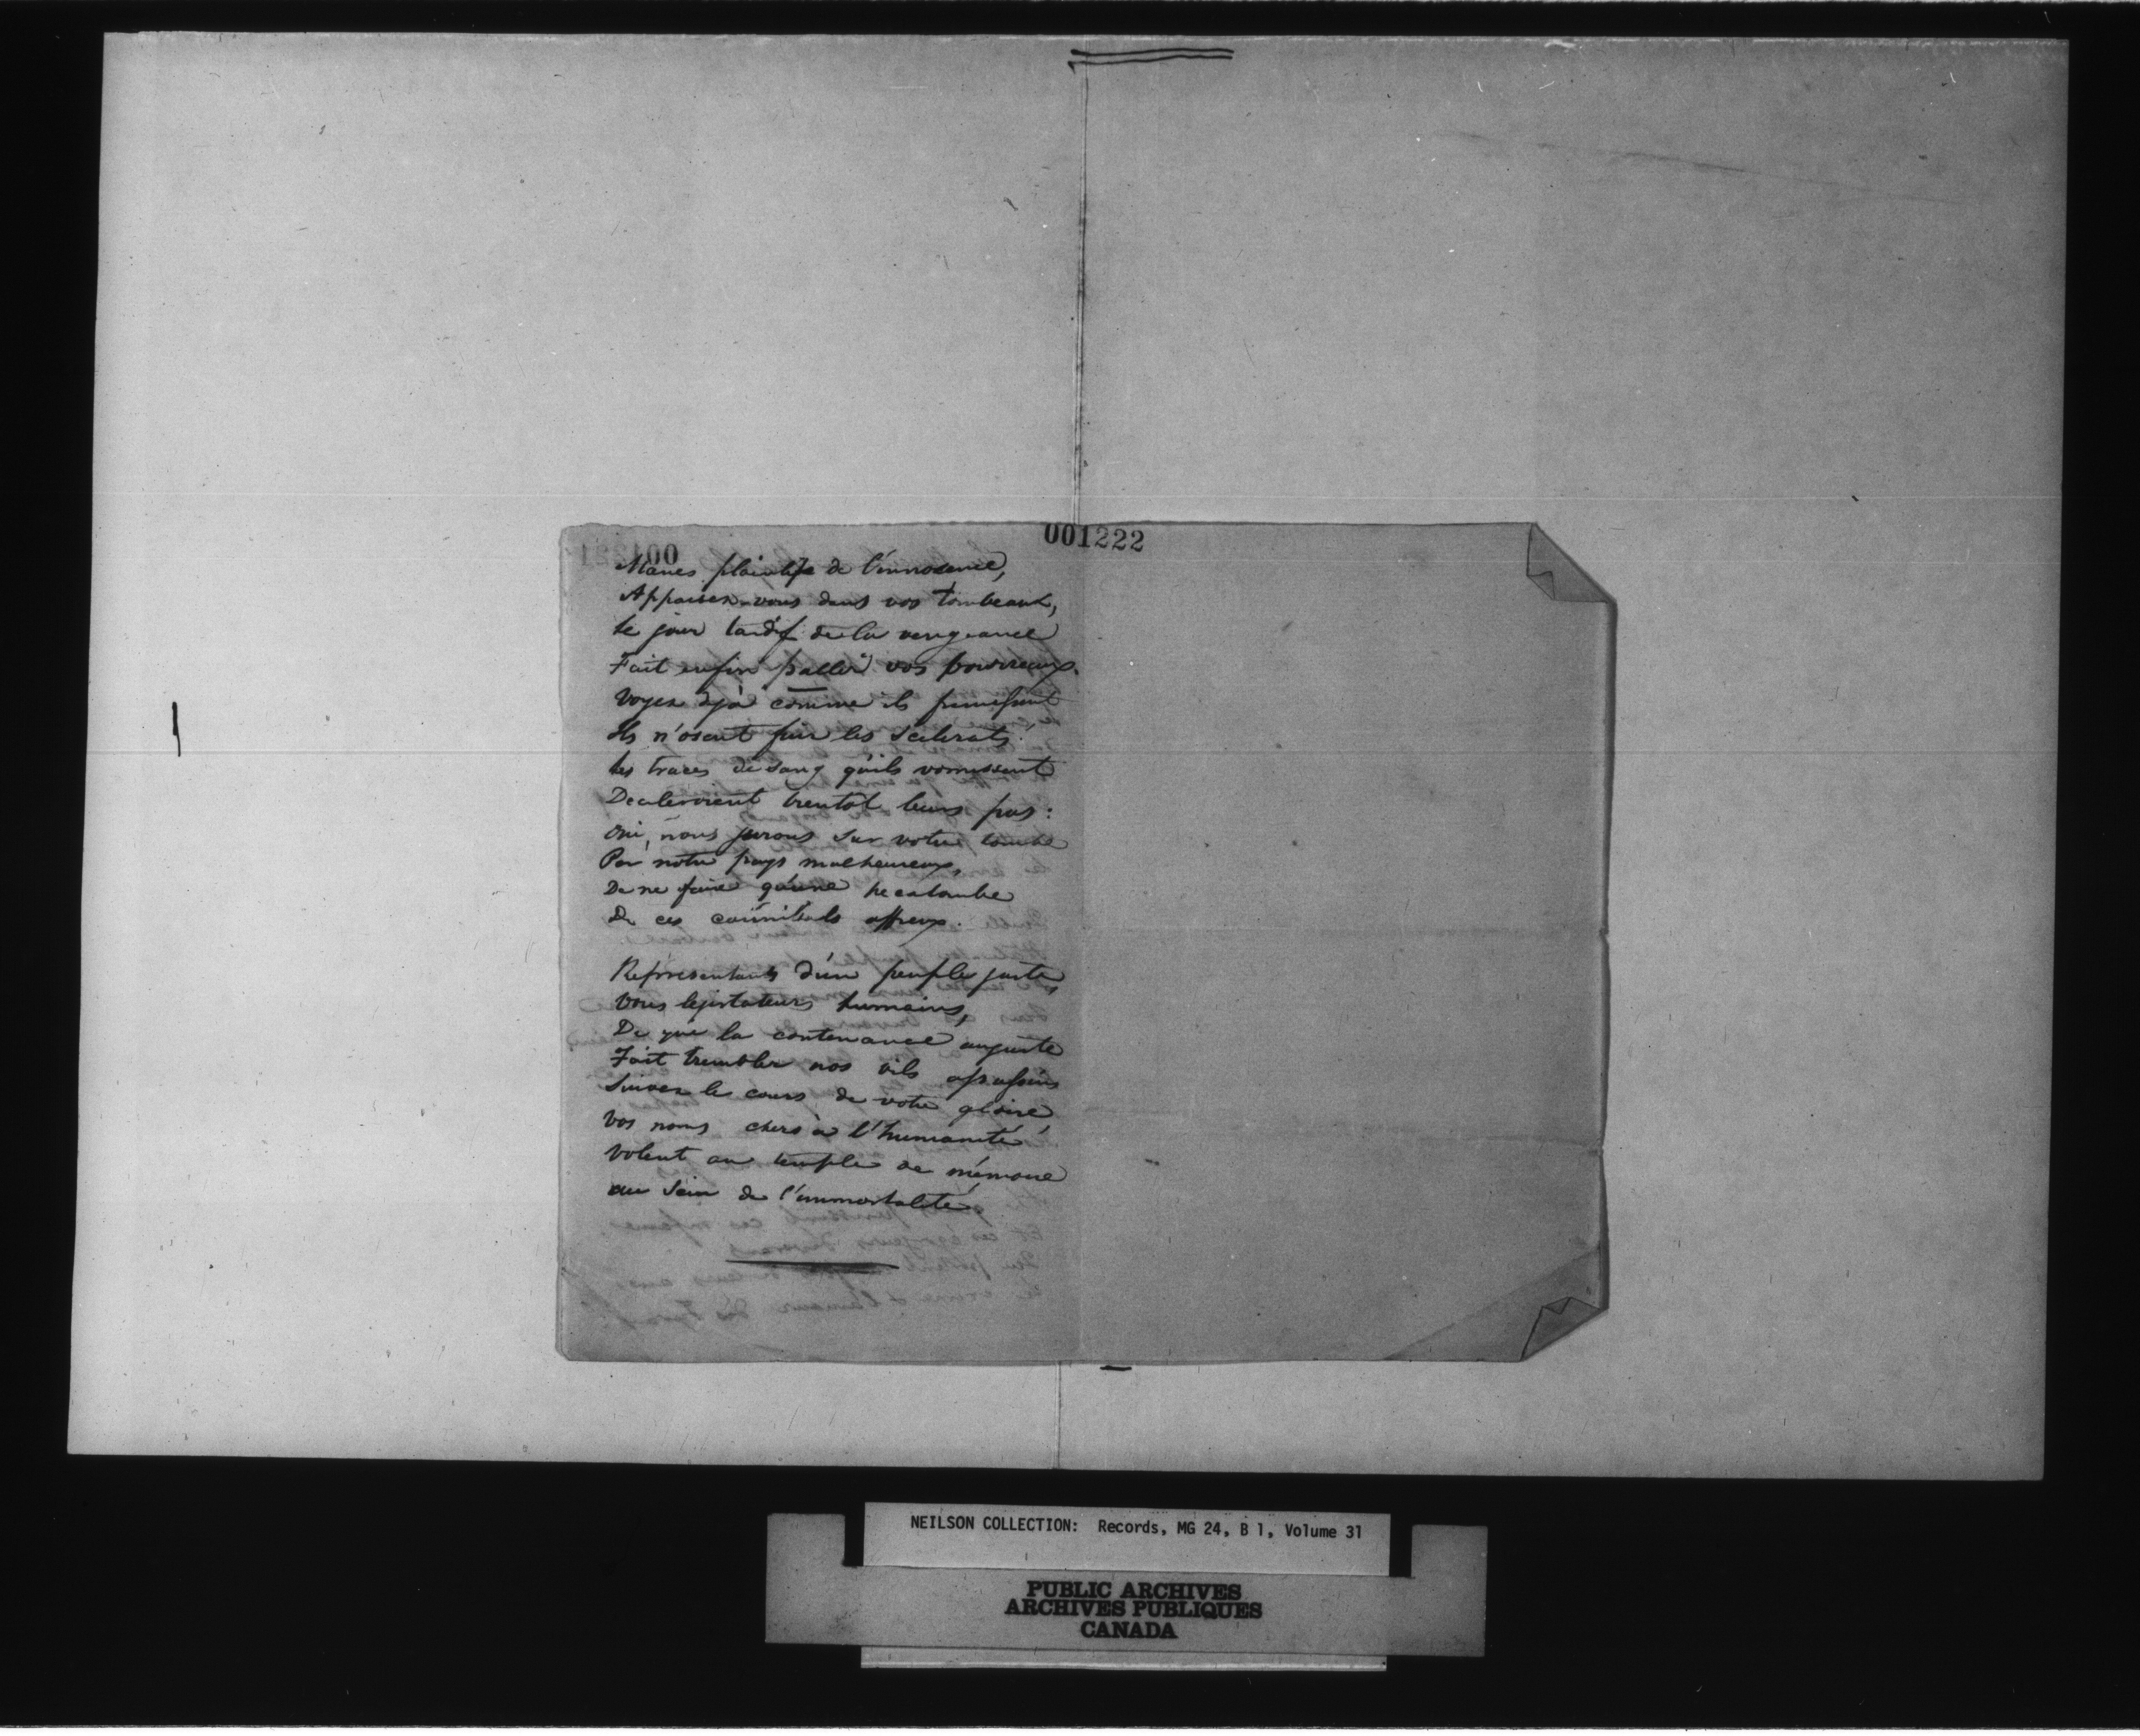 001222
Manes plaintifs de l'innocence,
Appaisez-vous dans vos tombeaux,
Le jour tardif de la vengeance
Fait enfin paller vos bourreaux.
Voyez déjà comme ils fremissent
Ils n'osent fuir les scelerats!
Les traces de sang qu'ils vomissent
bientôt leurs pas:
Oui, nous jurons sur votre tombe
Par notre pays malheureux,
De ne faire qu'une hecatombe
De ces cannibals affreux.
Representants d'un peuple juste,
Vous legislateurs humains,
De qui la contenance auguste
Fait trembler nos vils assassins
Suivez le cours de votre gloire,
Vos noms chers à l'humanité,
Volent au temple de mémoire
au sein de l'immortalité.
NEILSON COLLECTION: Records, MG 24, B 1, Volume 31
PUBLIC ARCHIVES
ARCHIVES PUBLIQUES
CANADA